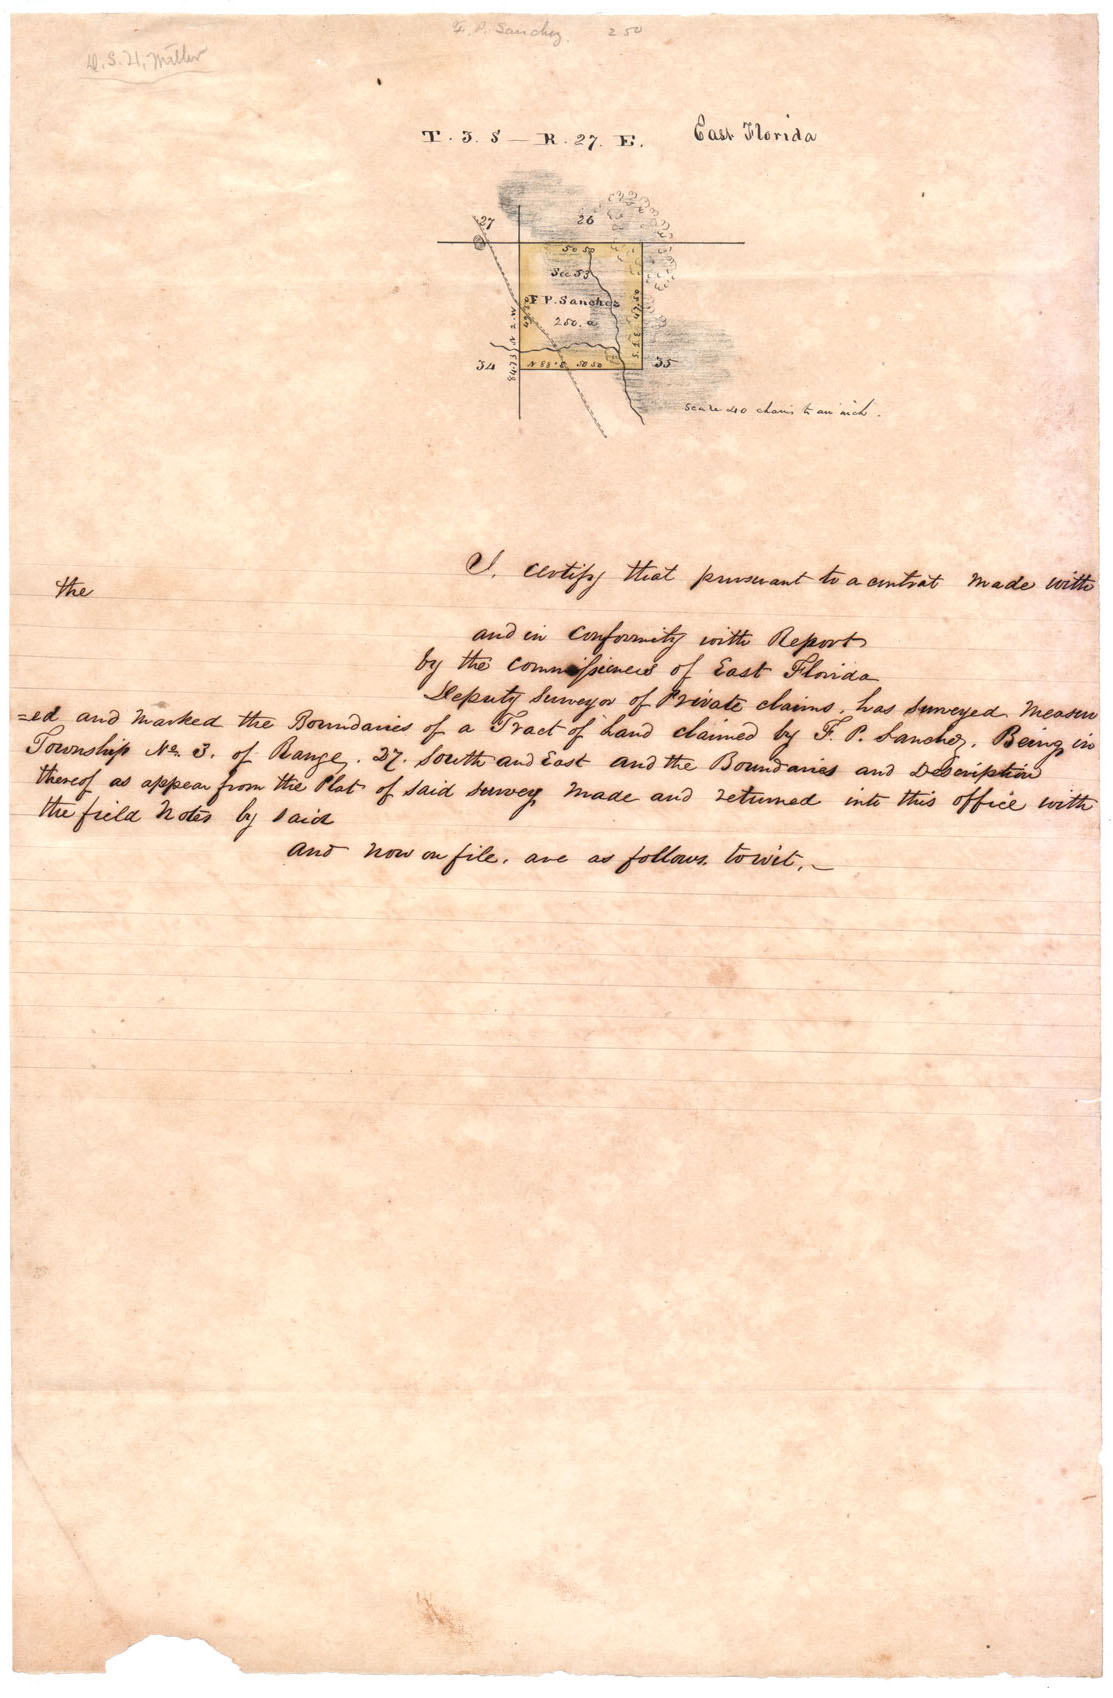 F. P. Sanchez. 250
D. S. H. Miller
T. 3. S — R. 27. E. East Florida
27
26
50 50
Sec 53
F P. Sanchez
250. a
49.50
47.50
S. 2. E
84.73 N 2. W
34
N 88° E 50 50
35
Scale 40 chains to an inch.
I, certify that pursuant to a contrat made with
the
and in Conformity with Report
by the commissieners of East Florida
Deputy Surveyor of Private claims. has surveyed Measur
=ed and Marked the Boundaries of a Tract of Land claimed by F. P. Sanchez. Being in
Township No. 3. of Range. 27. South and East and the Boundaries and Description
thereof as appear from the Plat of said survey Made and returned into this office with
the field Notes by said
and now on file, are as follows. towit, —